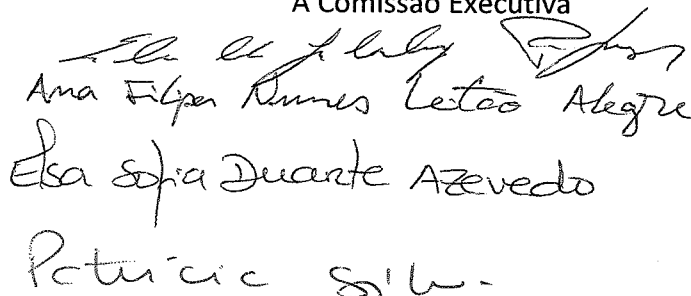 A Comissão Executiva
Ana Filipa Nunes Leitão Alegre
Elsa Sofia Duarte Azevedo
Patrícia Silva